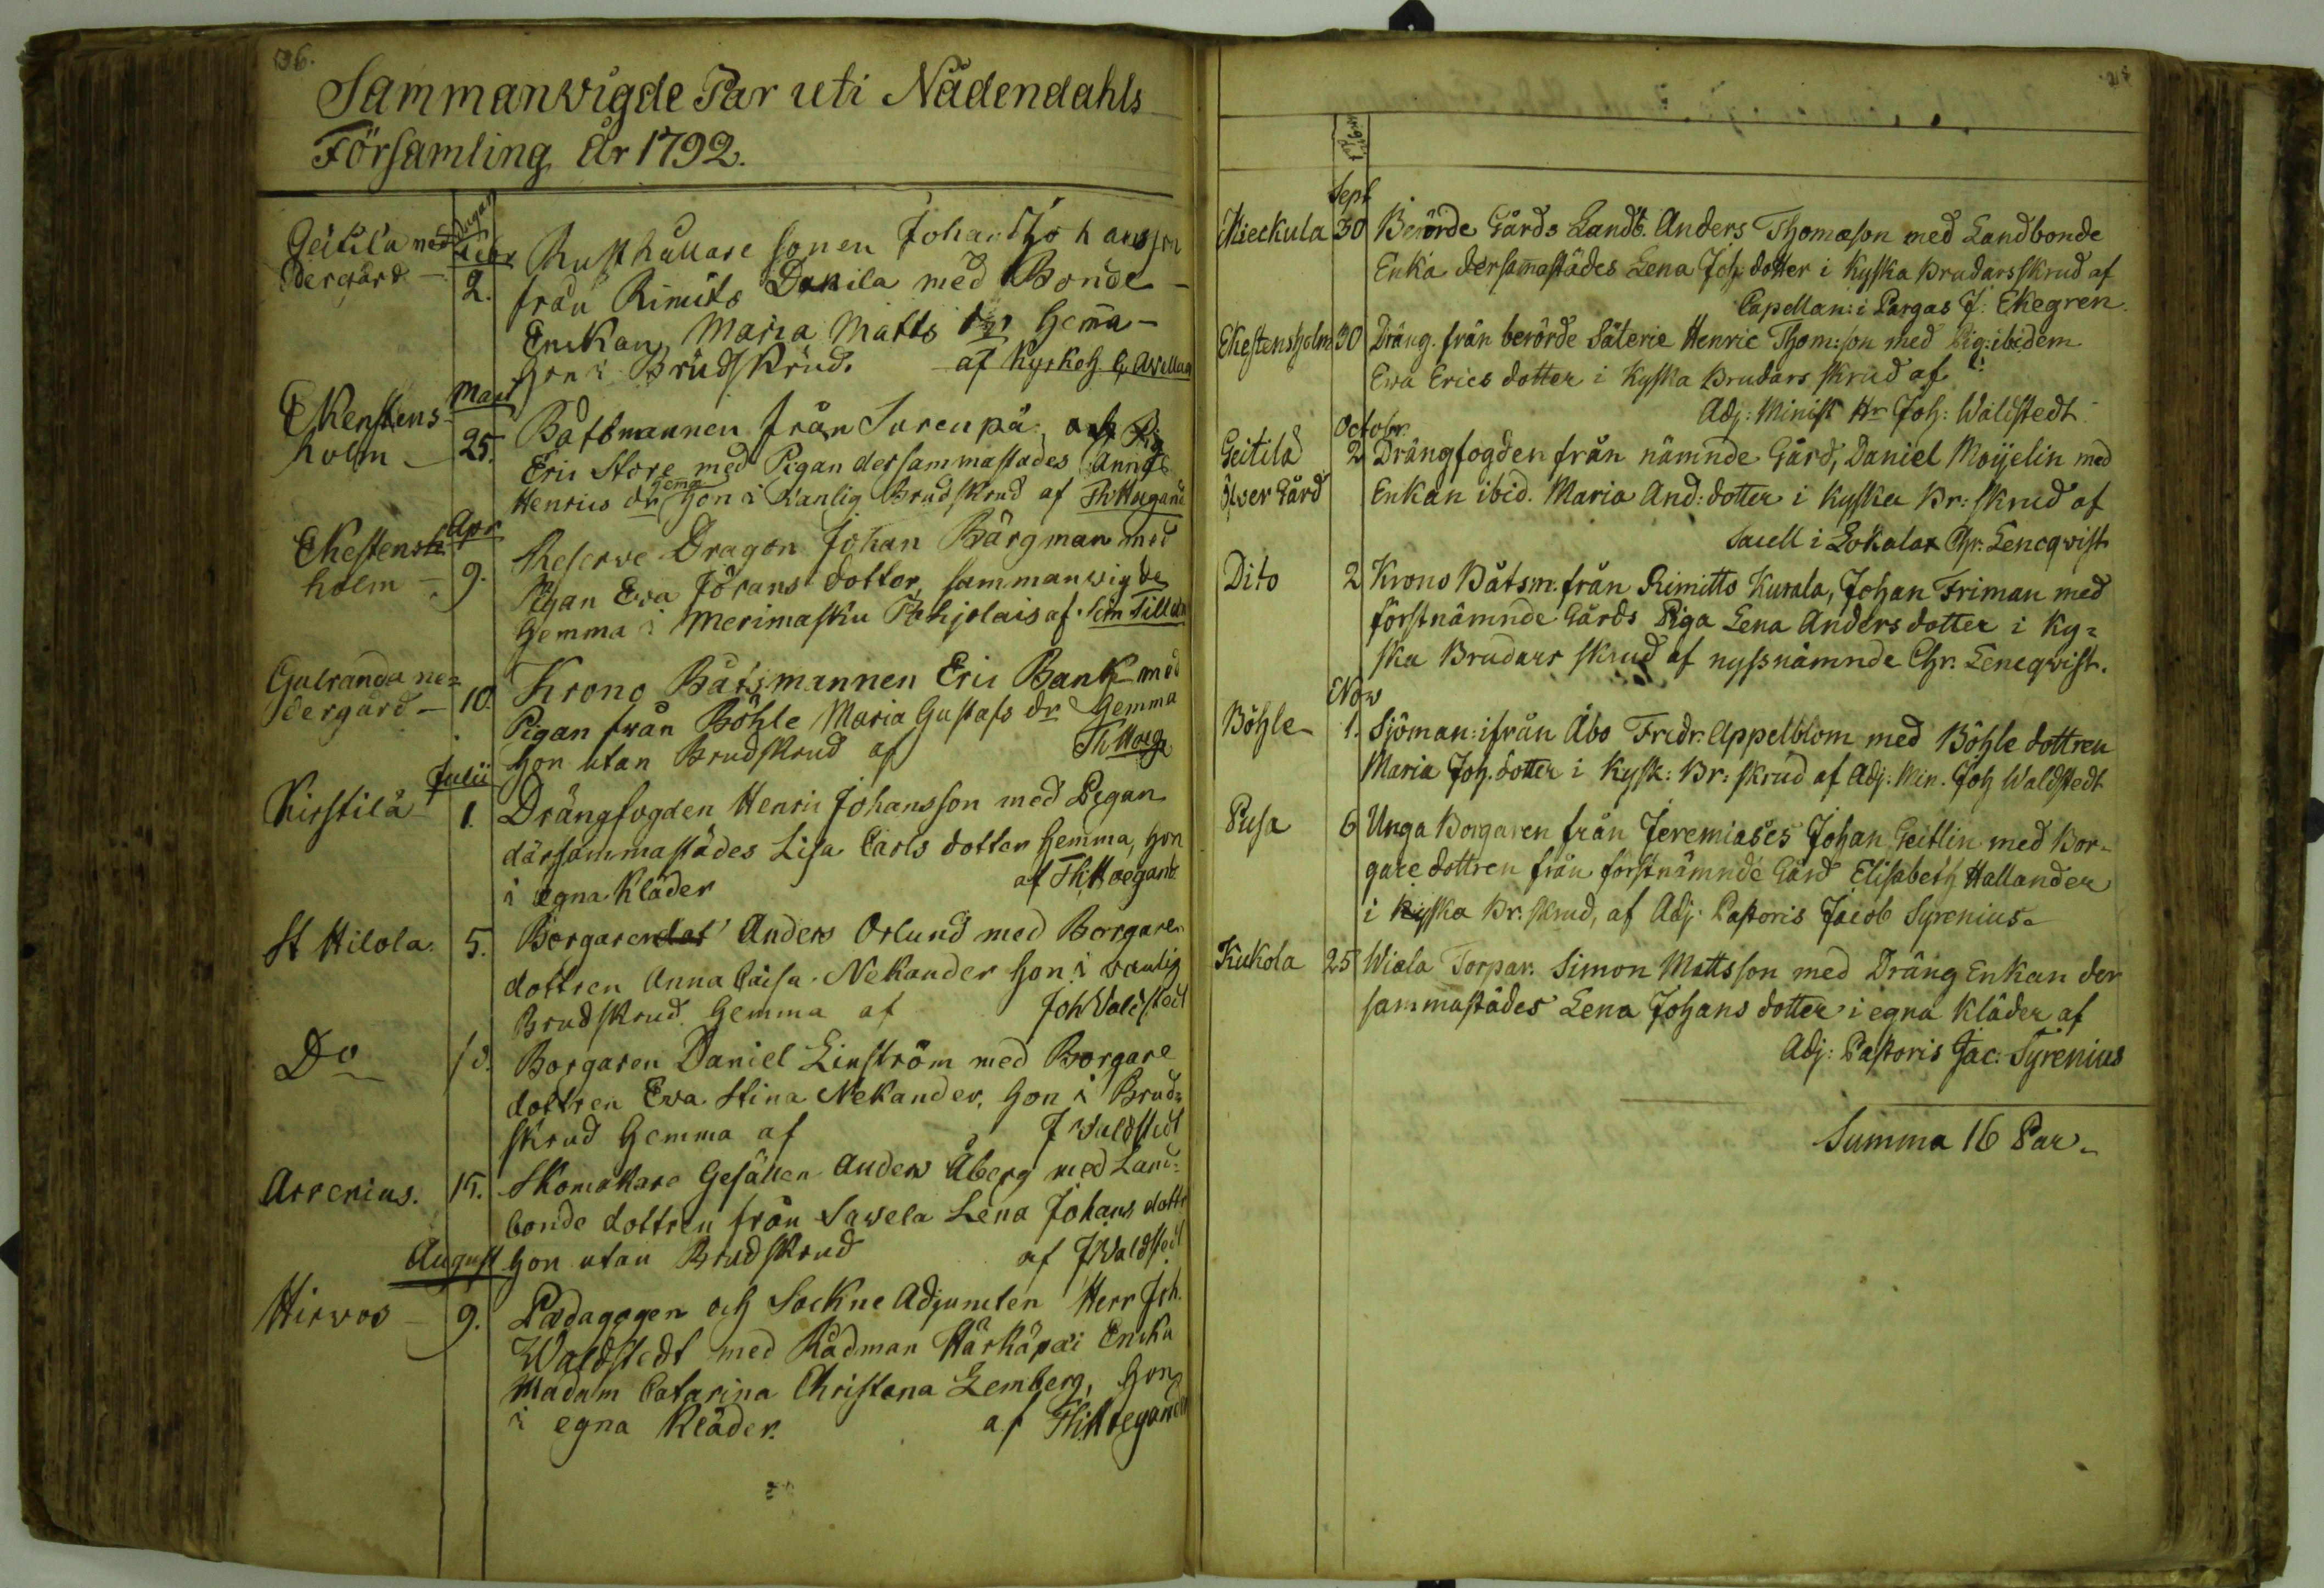 Sammanwigde Par uti Nådendahls
Församling År 1792.
Geitila ned
dergård — 2.
Rusthållare sonen Johan Johansson
från Rimito Dakila med Bonde
Enkan Maria Matts dr Hem̄a
hon i Brudskrud. af Kyrkoh.
Mart
Ekenstens
holm — 25.
Båtsmannen från Surenpä
Eric Store med Pigan dersammastädes Anna
Henrics dr hema hon i Vanlig Brudskrud af
Apr
Ekestens
holm — 9.
Reserve Dragon Johan Bärgman med
Pigan Ewa Jörans dotter, sammanwigde
hemma i Merimasku Pohjolais af
Gulranda ne=
dergård — 10.
Krono Båtsmannen Eric Bank med
Pigan från Böhle Maria Gustafs dr hemma
hon utan Brudskrud af
Julii
Kirstilä 1.
Drängfogden Henric Johansson med Pigan
därsammastädes Lisa Carls dotter hem̄a, hon
i egna Kläder af
St Hilola. 5.
Borgaren Anders Orlund med Borgare
dottren Anna Caisa Nekander hon i vanlig
Brudskrud hemma af Joh Waldstedt
Do 10.
Borgaren Daniel Linström med Borgare
dottren Ewa Stina Nekander, hon i Brud=
skrud hemma af J Waldstedt
Arrenius. 15.
Skomakare Gesällen Anders Åberg med Land=
bonde dottren från Sawela Lena Johans dottr
August
hon utan Brudskrud af J Waldstedt
Hirvos — 9.
Pædagogen och Sockne Adjuncten Herr Joh.
Waldstedt med Rådman Härkäpäi Enka
Madam Catarina Christina Lemberg, hon
i egna Kläder. af
Sept
Kieckula 30 Berörde Gårds Landb. Anders Thomæson med Landbonde
Enka dersam̄astädes Lena Joh: dotter i Kyska Brudars skrud af
Capellan: i Pargas J: Ekegren.
Ekestensholm 30 Dräng. från berörde Säterie Henric Thom:son med Pig: ibidem
Ewa Erics dotter i Kyska Brudars skrud af
Adj: Minist Hr Joh: Waldstedt
Octobr.
Geitila 2 Drängfogden från nämnde Gård, Daniel Moijelin med
Öfwer Gård Enkan ibid. Maria And: dotter i kyska Br: skrud af
Sacell i Lokalax Chr. Lencqvist
Dito 2 Krono Båtsm. från Rimitto Kurala, Johan Friman med
förstnämnde Gårds Piga Lena Anders dotter i Ky=
ska Brudars skrud af nyssnämnde Chr. Lencqvist.
Now
Böhle 1. Sjöman: ifrån Åbo Fridr. Appelblom med Böhle dottren
Maria Joh. dotter i Kysk: Br: skrud af Adj: Min. Joh Waldstedt
Pusa 6 Unga Borgaren från Jeremiases Johan Geitlin med Bor=
gare dottren från förstnämnde Gård Elisabeth Hallander
i kyska Br. skrud, af Adj: Pastoris Jacob Syrenius.
Kukola 25 Wiala Torpar. Simon Mattsson med Dräng Enkan der
sammastädes Lena Johans dotter i egna Kläder af
Adj: Pastoris Jac: Syrenius
Summa 16 Par.